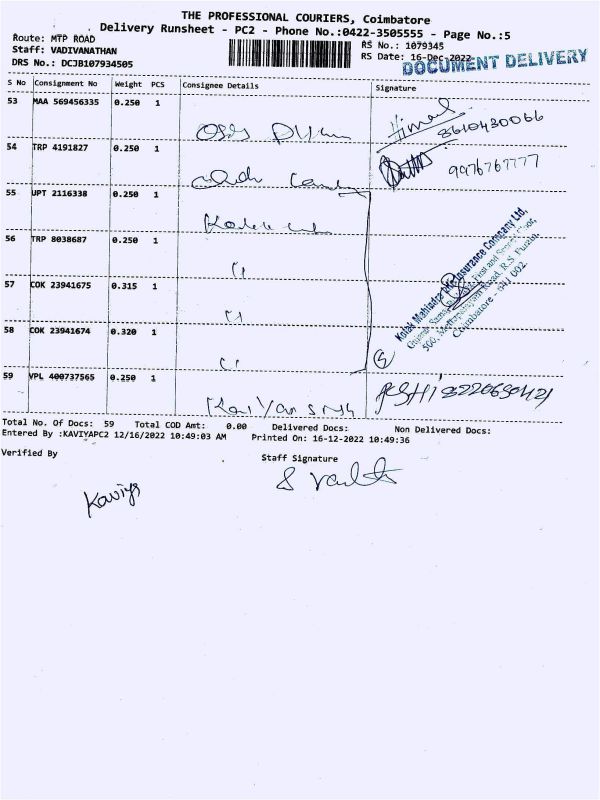 THE PROFESSIONAL COURIERS, Coimbatore
Delivery Runsheet - PC2 - Phone No.:0422-3505555 - Page No.:5
Route: MTP ROAD
RS No.: 1079345
Staff: VADIVANATHAN
RS Date: 16-Dec-2022
DOCUMENT DELIVERY
DRS No.: DCJB107934505
S No Consignment No Weight PCS Consignee Details Signature
53 MAA 569456335 0.250 1
8610430066
54 TRP 4191827 0.250 1
9976767777
55 UPT 2116338 0.250 1
56 TRP 8038687 0.250 1
57 COK 23941675 0.315 1
58 COK 23941674 0.320 1
Kotak Mahindra Life Insurance Company Ltd,
500, Mettupalayam Road, R.S. Puram,
Coimbatore - 641 002.
59 VPL 400737565 0.250 1
Total No. Of Docs: 59 Total COD Amt: 0.00 Delivered Docs: Non Delivered Docs:
Entered By :KAVIYAPC2 12/16/2022 10:49:03 AM Printed On: 16-12-2022 10:49:36
Verified By Staff Signature
Kaviya